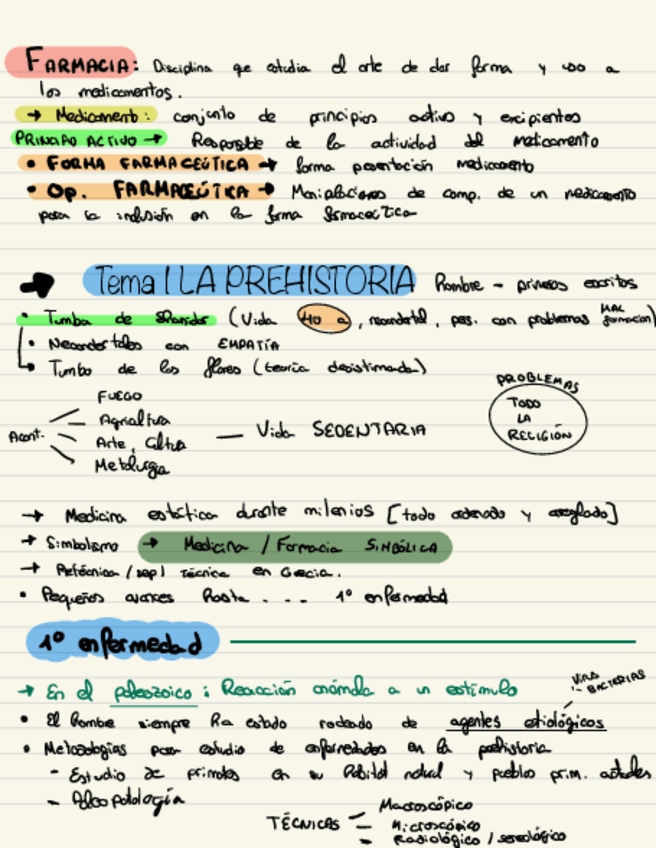 FARMACIA: Disciplina que estudia el arte de dar forma y uso a
los medicamentos.
→ Medicamento: conjunto de principios activo y excipientes
PRINCIPIO ACTIVO → Responsable de la actividad del medicamento
• FORMA FARMACEÚTICA → forma presentación medicamento
• Op. FARMACEÚTICA → Manipulaciones de comp. de un medicamento
para su inclusión en la forma farmaceútica
→ Tema 1 LA PREHISTORIA Hombre - primeros escritos
• Tumba de Shanidar (Vida 40 a, neandertal, pers. con problemas MAL formación)
• Neandertales con EMPATÍA
→ Tumba de las flores (teoría desestimada)
PROBLEMAS
TODO
LA
RELIGIÓN
FUEGO
Agricultura
Acont. Arte, Cultura — Vida SEDENTARIA
Metalurgia
→ Medicina estática durante milenios [todo ordenado y arreglado]
→ Simbolismo → Medicina / Farmacia SIMBÓLICA
→ Pretécnica / sep/ Técnica en Grecia.
• Pequeños avances hasta . . . 1º enfermedad
1º enfermedad
→ En el paleozoico : Reacción anómala a un estímulo
VIRUS
BACTERIAS
• El hombre siempre ha estado rodeado de agentes etiológicos
• Metodologías para estudio de enfermedades en la prehistoria
- Estudio de primates en su hábitat natural y pueblos prim. actuales
- Paleopatología
Macroscópico
TÉCNICAS - Microscópico
- Radiológico / serológico